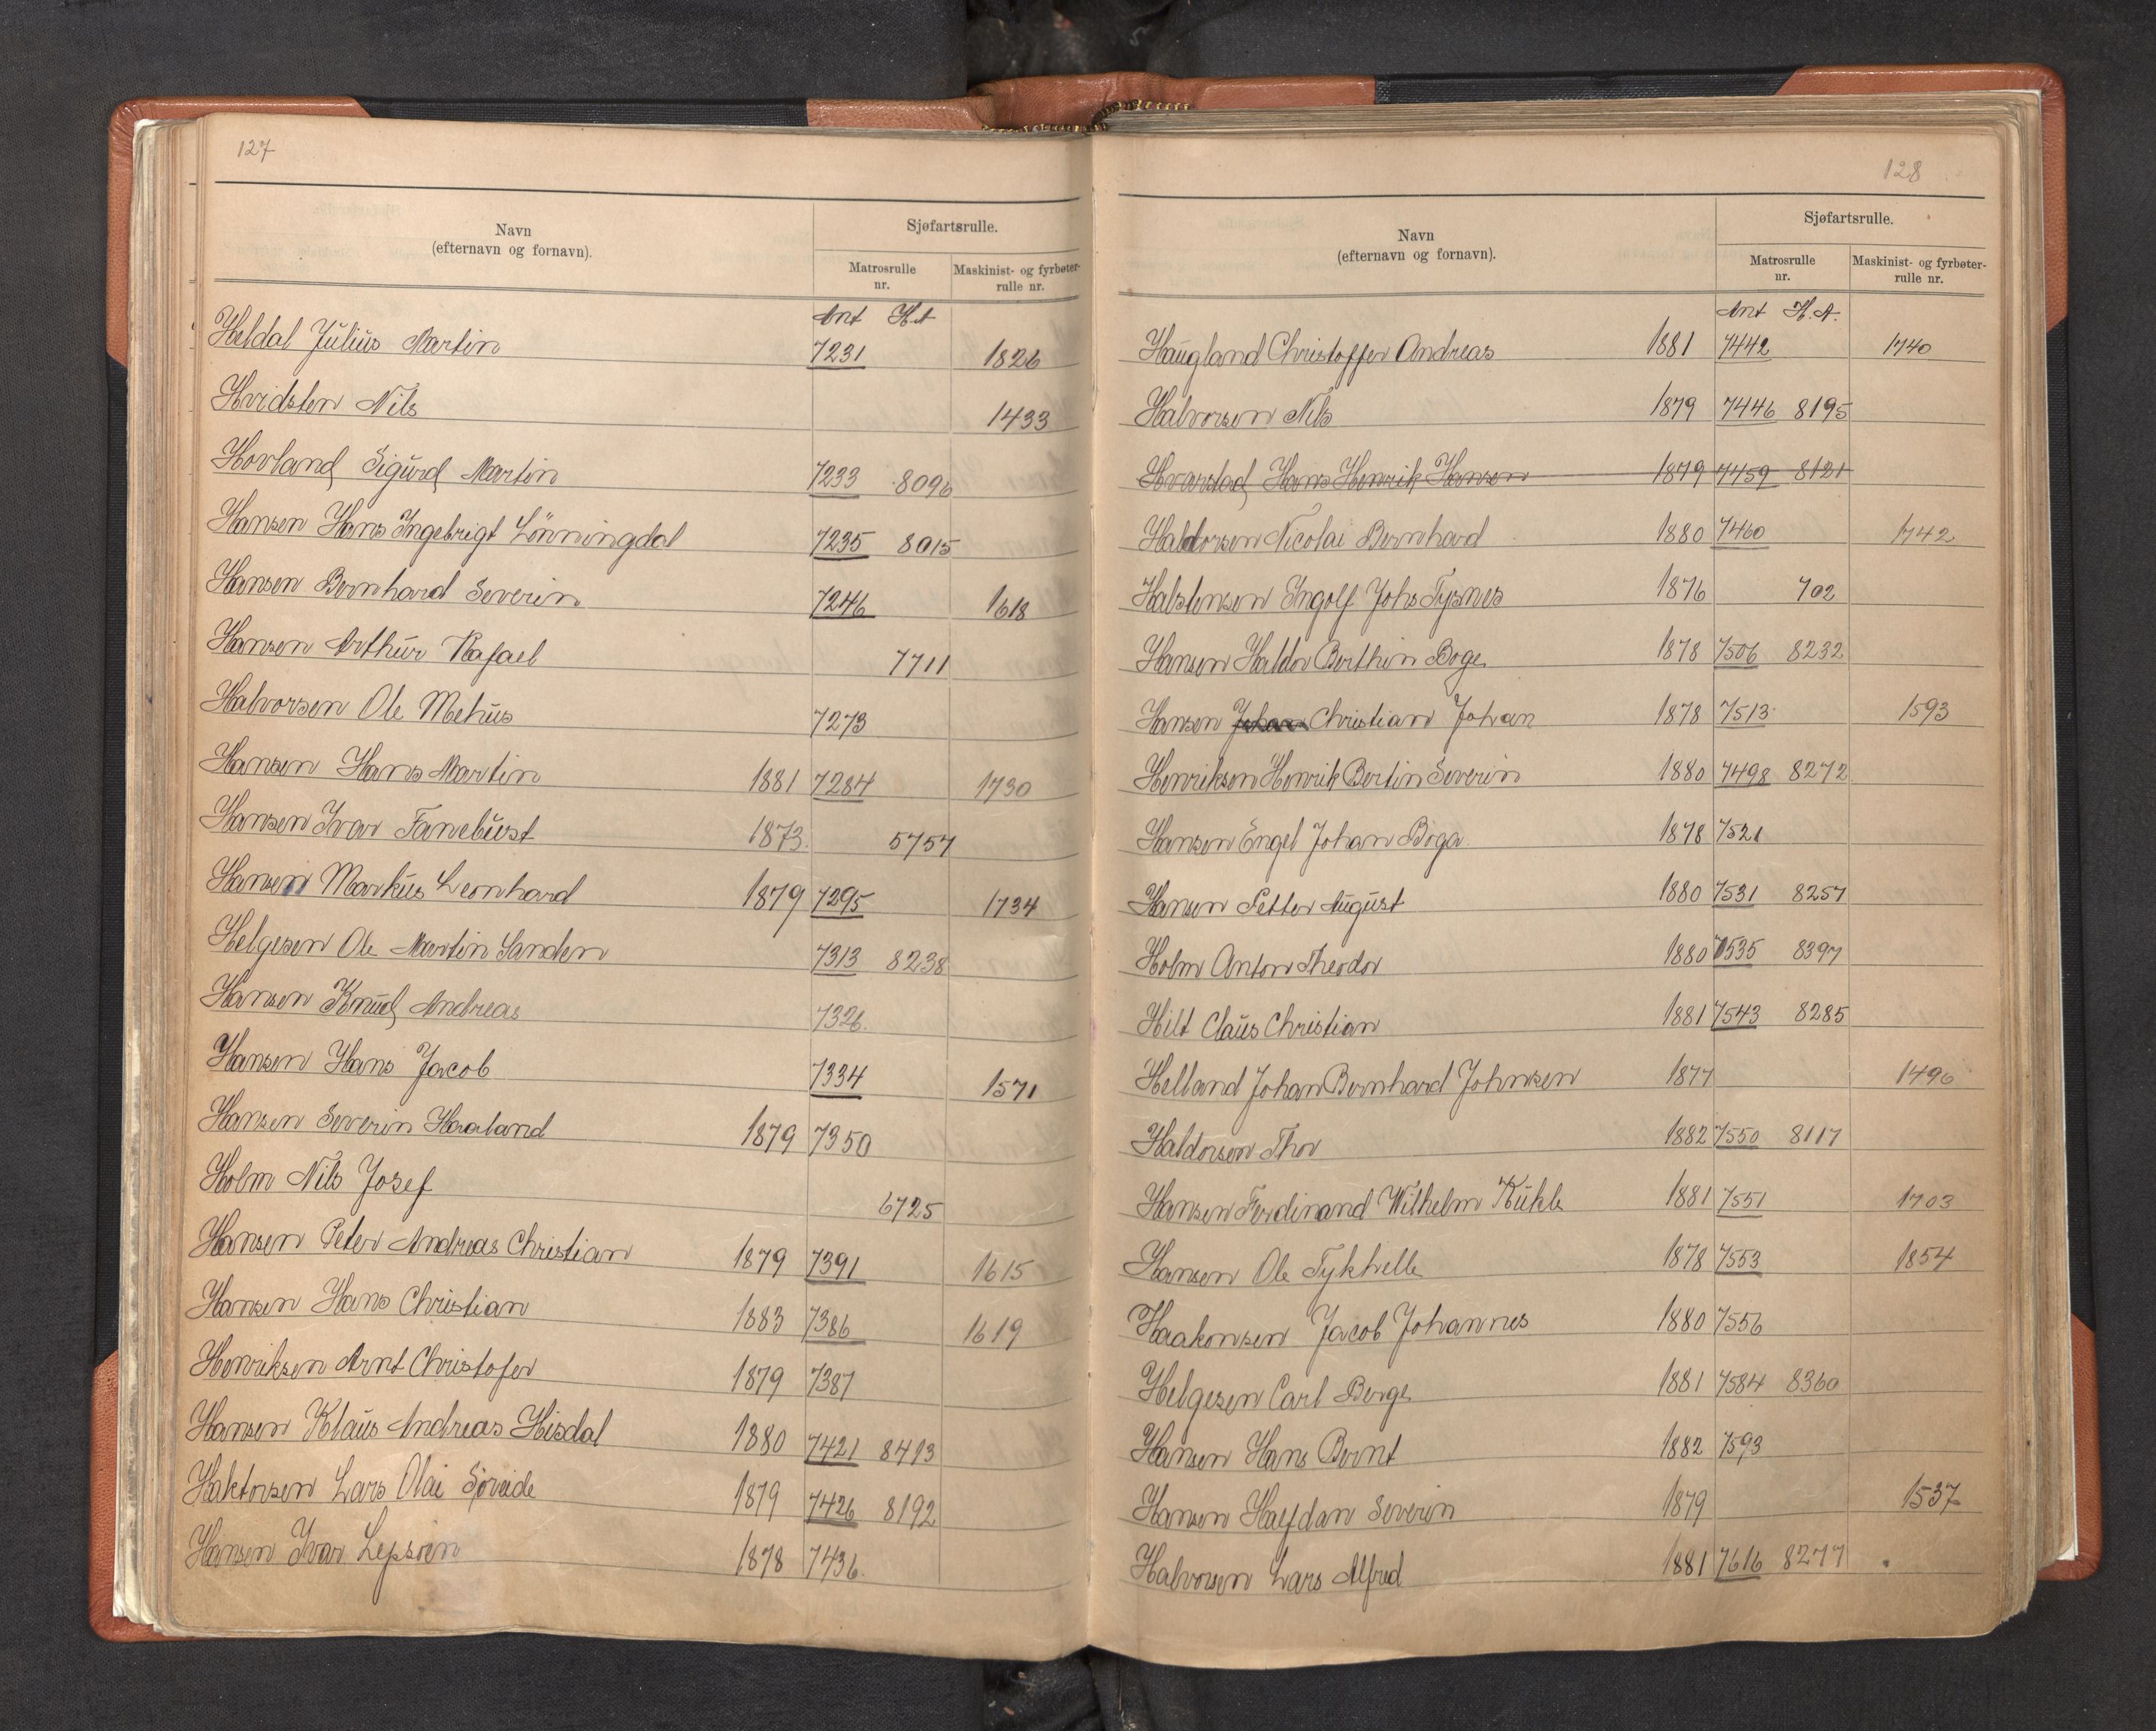 127
Navn
(efternavn og fornavn).
Sjøfartsrulle.
Matrosrulle
nr.
Maskinist- og fyrbøter-
rulle nr.
Ant H.A
Heldal Julius Martin 7231 1826
Hvidsten Nils 1433
Hovland Sigurd Martin 7233 8096
Hansen Hans Ingebrigt Lönningdal 7235 8015
Hansen Bernhard Severin 7246 1618
Hansen Arthur Rafael 7711
Halvorsen Ole Mehus 7273
Hansen Hans Martin 1881 7284 1730
Hansen Ivar Fanebust 1873. 5757
Hansen Markus Leonhard 1879 7295 1734
Helgesen Ole Martin Sanden 7313 8238
Hansen Knud Andreas 7326.
Hansen Hans Jacob 7334 1571
Hansen Severin Haaland 1879 7350
Holm Nils Josef 6725
Hansen Peter Andreas Christian 1879 7391 1615
Hansen Hans Christian 1883 7386 1619
Henriksen Arnt Christofer 1879 7387
Hansen Klaus Andreas Hisdal 1880 7421 8413
Haktorsen Lars Olai Söreide 1879 7426 8192
Hansen Ivar Lepsöen 1878 7436.
128
Navn
(efternavn og fornavn).
Sjøfartsrulle.
Matrosrulle
nr.
Maskinist- og fyrbøter-
rulle nr.
Ant H.A.
Haugland Christoffer Andreas 1881 7442 1740
Halvorsen Nils 1879 7446 8195
Hvarstad Hans Henrik Hansen 1879 7459 8121
Haldorsen Nicolai Bernhard 1880 7460 1742
Halstensen Ingolf Johs Tysnes 1876 702
Hansen Haldor Berthin Boge 1878 7506 8232
Hansen Johan Christian Johan 1878 7513 1593
Henriksen Henrik Bertin Severin 1880 7498 8272
Hansen Engel Johan Boga 1878 7521
Hansen Petter August 1880 7531 8257
Holm Anton Theodor 1880 7535 8397
Hilt Claus Christian 1881 7543 8285
Helland Johan Bernhard Johnsen 1877 1496
Haldorsen Thor 1882 7550 8117
Hansen Ferdinand Wilhelm Kukle 1881 7551 1703
Hansen Ole Tykhelle 1878 7553 1854
Haakonsen Jacob Johannes 1880 7556
Helgesen Carl Berge 1881 7584 8360
Hansen Hans Bernt 1882 7593
Hansen Halfdan Severin 1879 1537
Halvorsen Lars Alfred 1881 7616 8277